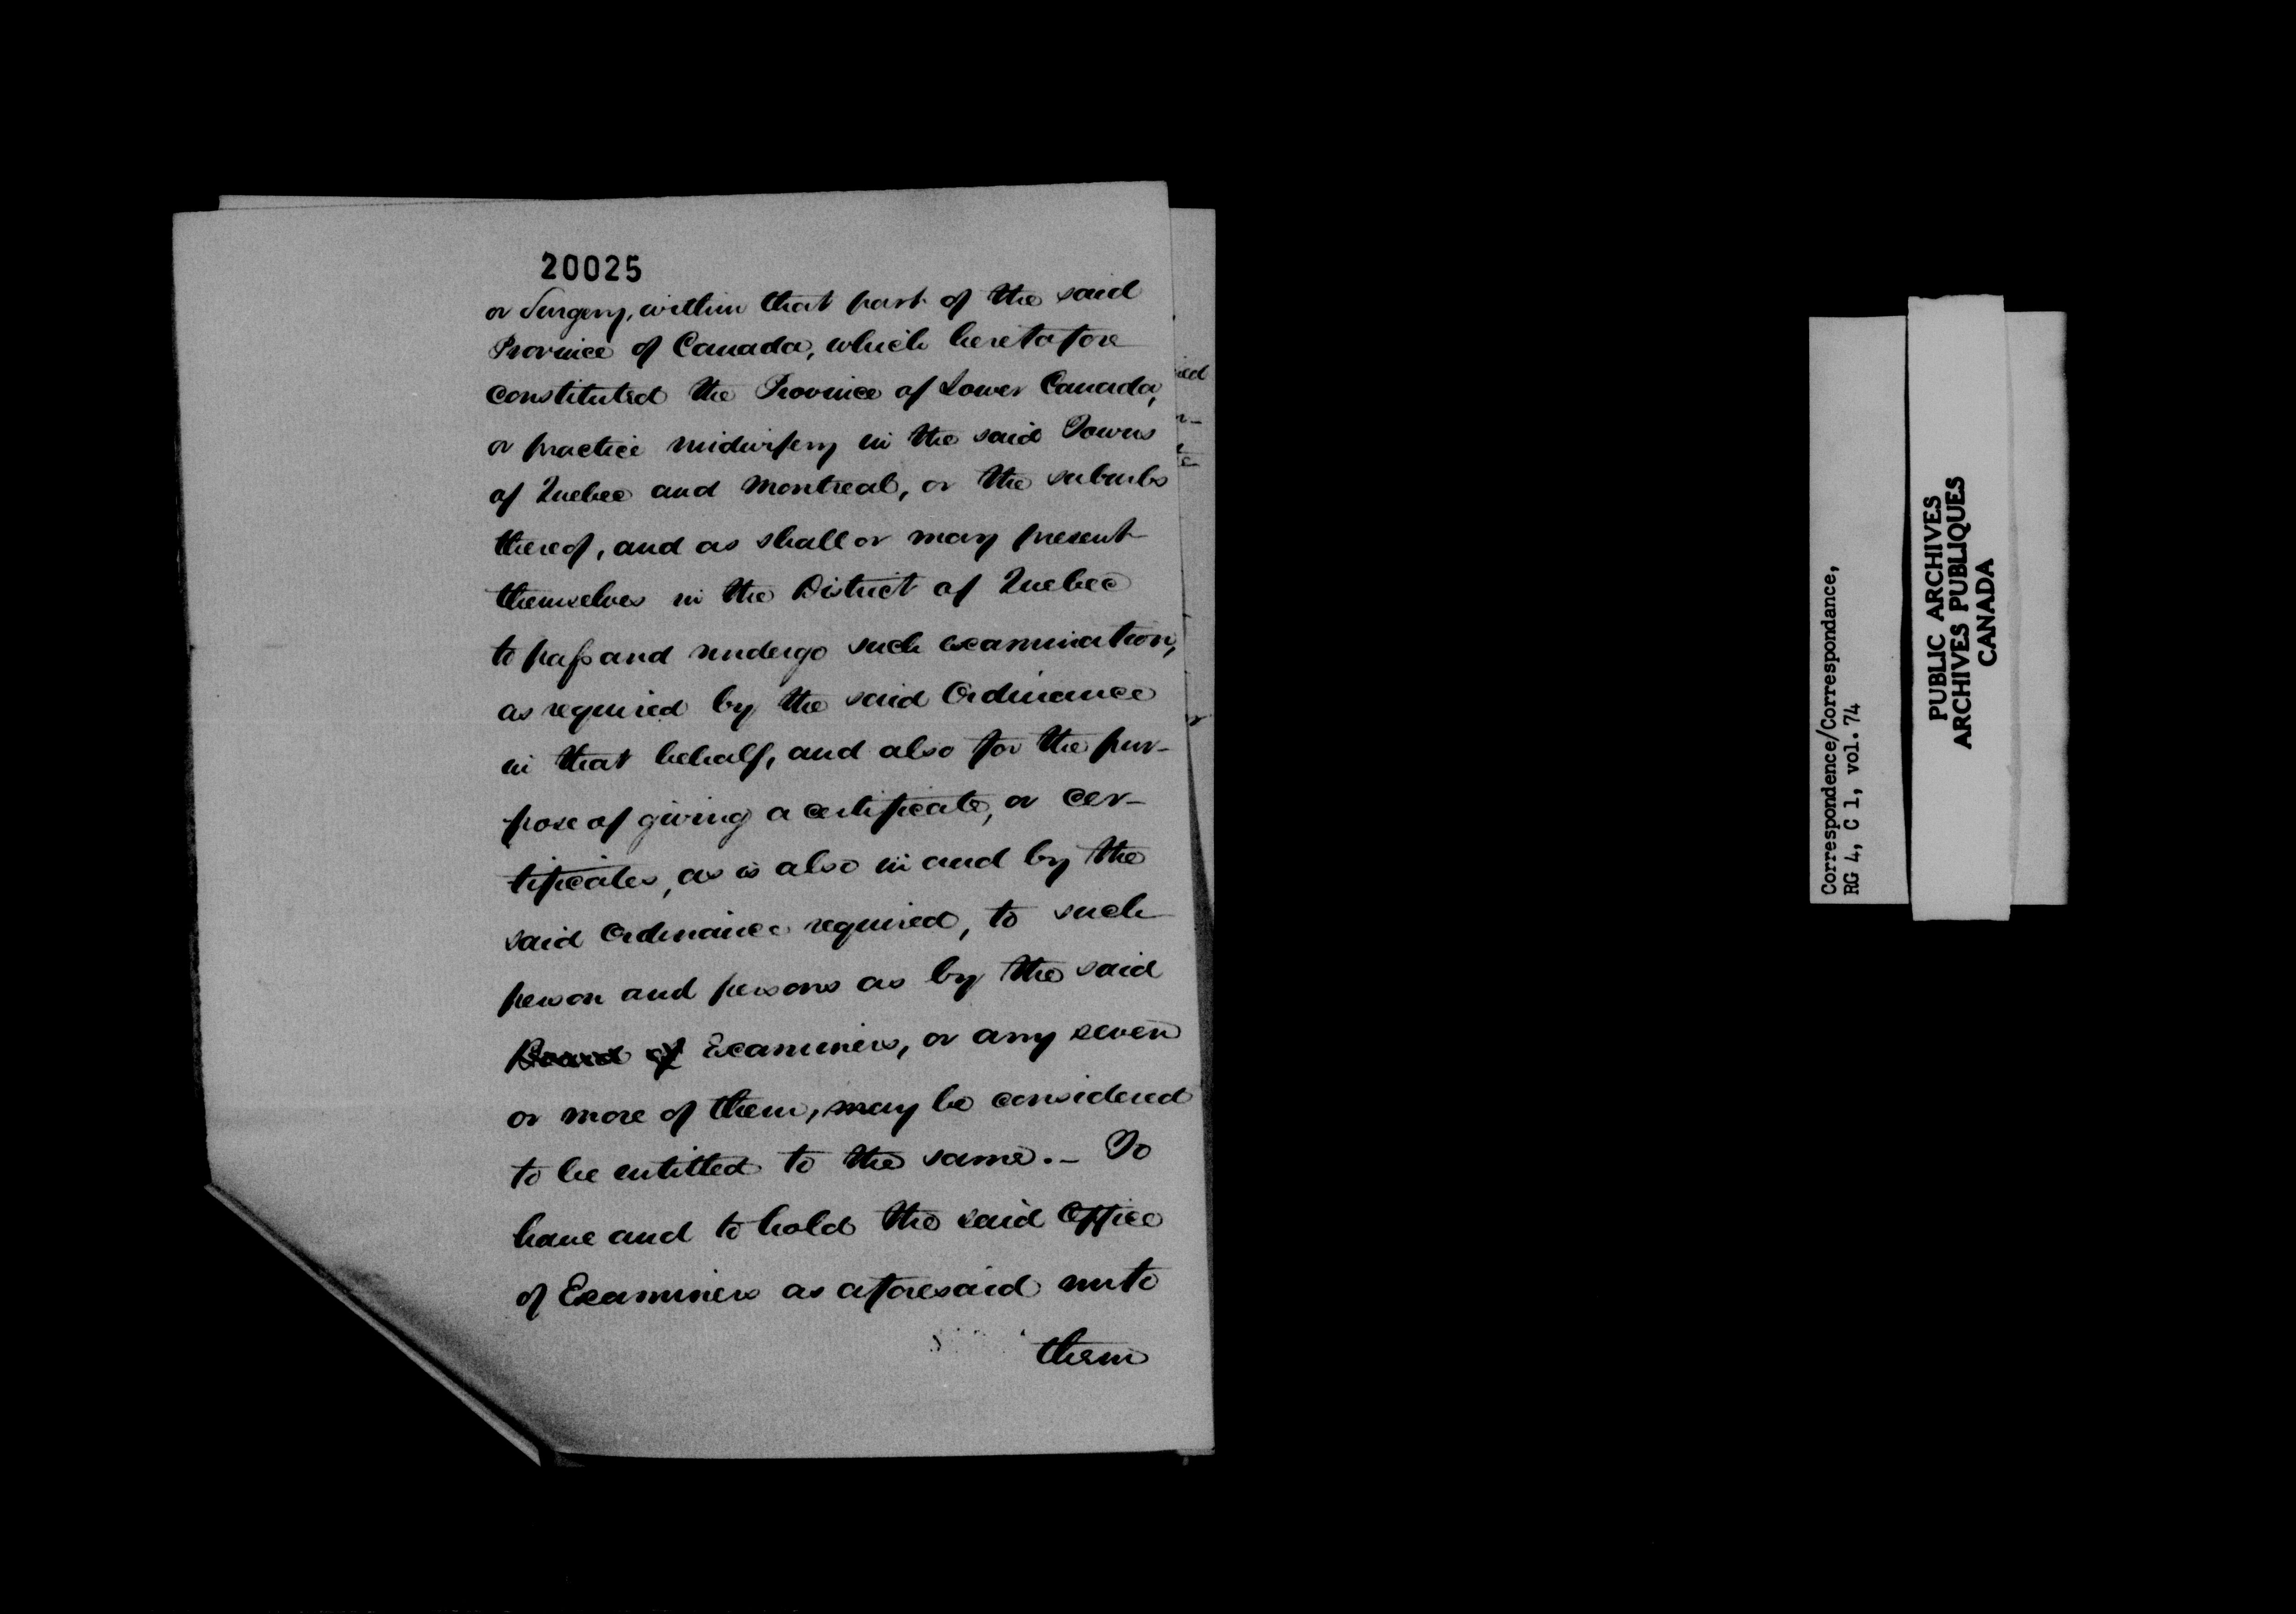 20025
or Surgery, within that part of the said
Province of Canada, which heretofore
constituted the Province of Lower Canada,
or practice midwifery in the said Towns
of Quebec and Montreal, or the suburbs
thereof, and as shall or may present
themselves in the District of Quebec
to pass and undergo such examination,
as required by the said Ordinance
in that behalf, and also for the pur-
pose of giving a certificate, or cer-
tificates, as is also in and by the
said Ordinance required, to such
person and persons as by the said
Board of Examiners, or any seven
or more of them, may be considered
to be entitled to the same._ To
have and to hold the said Office
of Examiners as aforesaid unto
them
Correspondence/Correspondance,
RG 4, C 1, vol. 74
PUBLIC ARCHIVES
ARCHIVES PUBLIQUES
CANADA